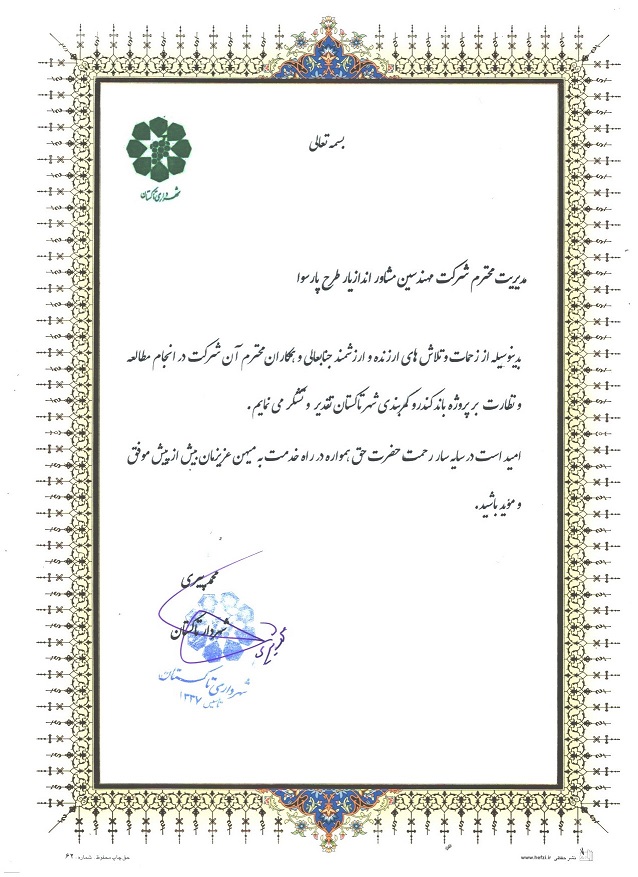 بسمه تعالی
شهرداری تاکستان
مدیریت محترم شرکت مهندسین مشاور اندازیار طرح پارسوا
بدینوسیله از زحمات و تلاش های ارزنده و ارزشمند جنابعالی و همکاران محترم آن شرکت در انجام مطالعه
و نظارت بر پروژه باند کندرو کمربندی شهر تاکستان تقدیر و تشکر می نمایم .
امید است در سایه سار رحمت حضرت حق همواره در راه خدمت به میهن عزیزمان بیش از پیش موفق
و مؤید باشید.
شهردار تاکستان
شهرداری تاکستان
تاسیس ۱۳۳۷
نشر حفظی www.hefzi.ir
حق چاپ محفوظ. شماره ۶۲